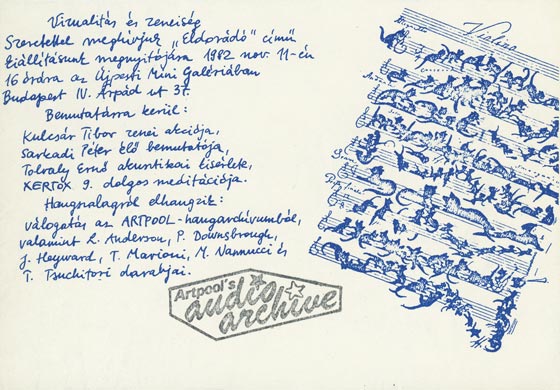 Vizualitás és zeneiség
Szeretettel meghívjuk „Eldorádó" című
kiállításunk megnyitójára 1982 nov. 11-én
16 órára az Újpesti Mini Galériában
Budapest IV. Árpád ut 37.
Bemutatásra kerül:
Kulcsár Tibor zenei akciója,
Sarkadi Péter élő bemutatója,
Tolvaly Ernő akusztikai kísérlet,
XERTOX 9. dolgos meditációja.
Hangszalagról elhangzik:
válogatás az ARTPOOL-hangarchívumból,
valamint L. Anderson, P. Downsbrough,
J. Heyward, T. Marioni, M. Nannucci és
T. Tsuchitori darabjai.
Artpool's
audio
archive
Violino